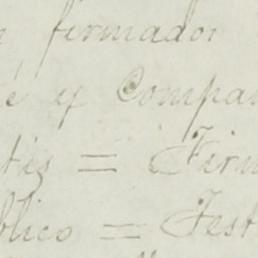 firmador
é y Compañ
tiz = Firm
blico = Test